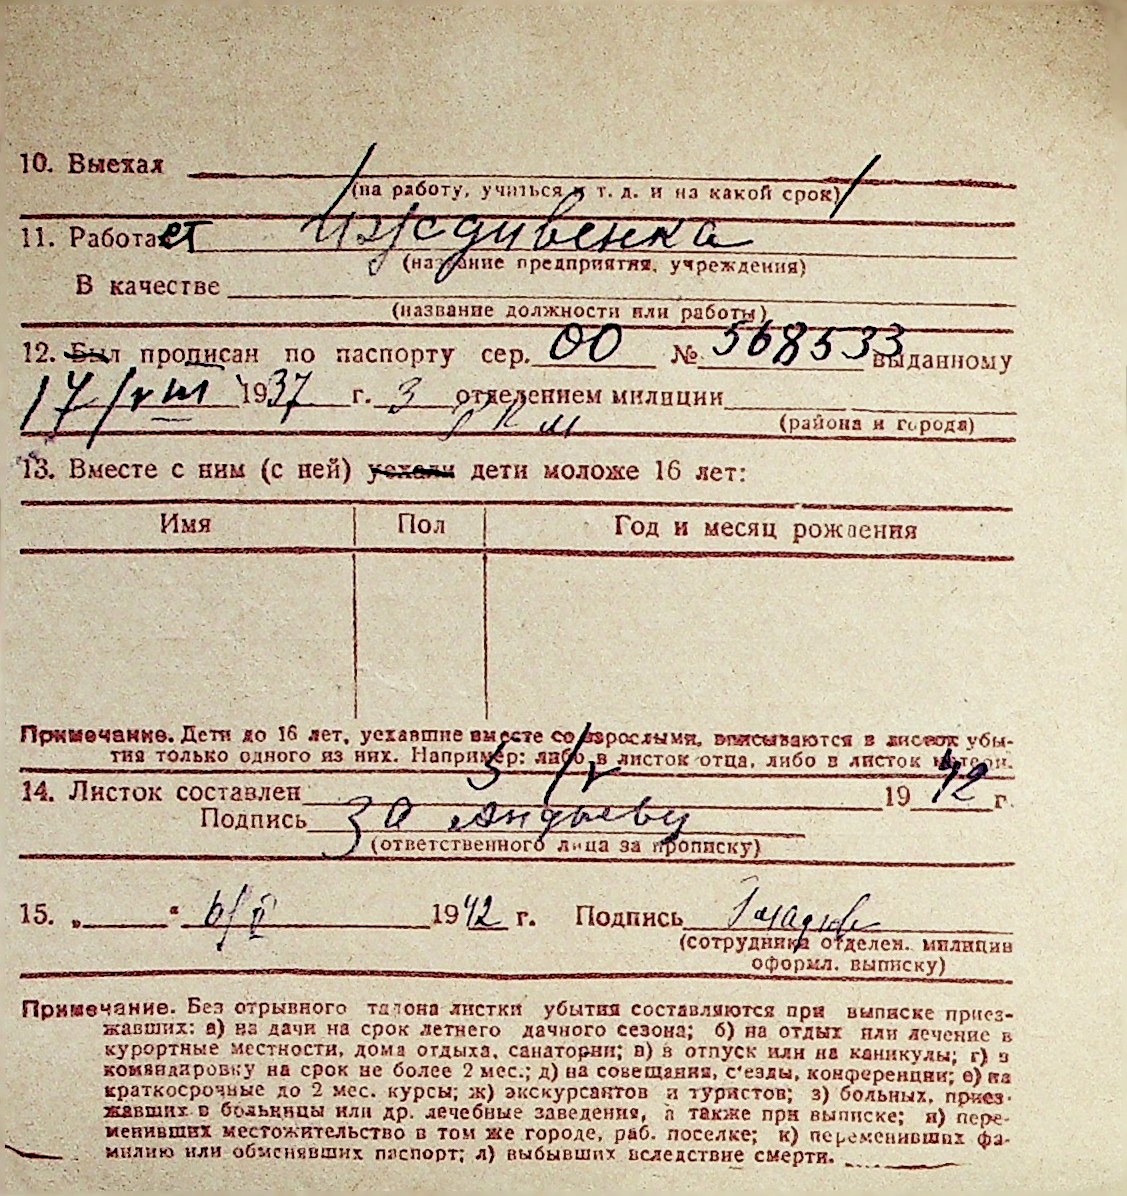 10. Выехал
(на работу, учиться и т. д. и на какой срок)
11. Работает иждивенка
(название предприятия, учреждения)
В качестве
(название должности или работы)
12. Был прописан по паспорту сер. 00 № 568533 выданному
17/VIII 1937 г. 3 отделением милиции
РКМ
(района и города)
13. Вместе с ним (с ней) уехали дети моложе 16 лет:
Имя Пол Год и месяц рождения
Примечание. Дети до 16 лет, уехавшие вместе со взрослыми, вписываются в листок убы-
тия только одного из них. Например: либо в листок отца, либо в листок матери.
14. Листок составлен 5/V 1942 г.
Подпись За
(ответственного лица за прописку)
15. „ “ 6/V 1942 г. Подпись
(сотрудника отделен. милиции
оформл. выписку)
Примечание. Без отрывного талона листки убытия составляются при выписке приез-
жавших: а) на дачи на срок летнего дачного сезона; б) на отдых или лечение в
курортные местности, дома отдыха, санатории; в) в отпуск или на каникулы; г) в
командировку на срок не более 2 мес.; д) на совещания, с'езды, конференции; е) на
краткосрочные до 2 мес. курсы; ж) экскурсантов и туристов; з) больных, приез-
жавших в больницы или др. лечебные заведения, а также при выписке; и) пере-
менивших местожительство в том же городе, раб. поселке; к) переменивших фа-
милию или обменявших паспорт; л) выбывших вследствие смерти.